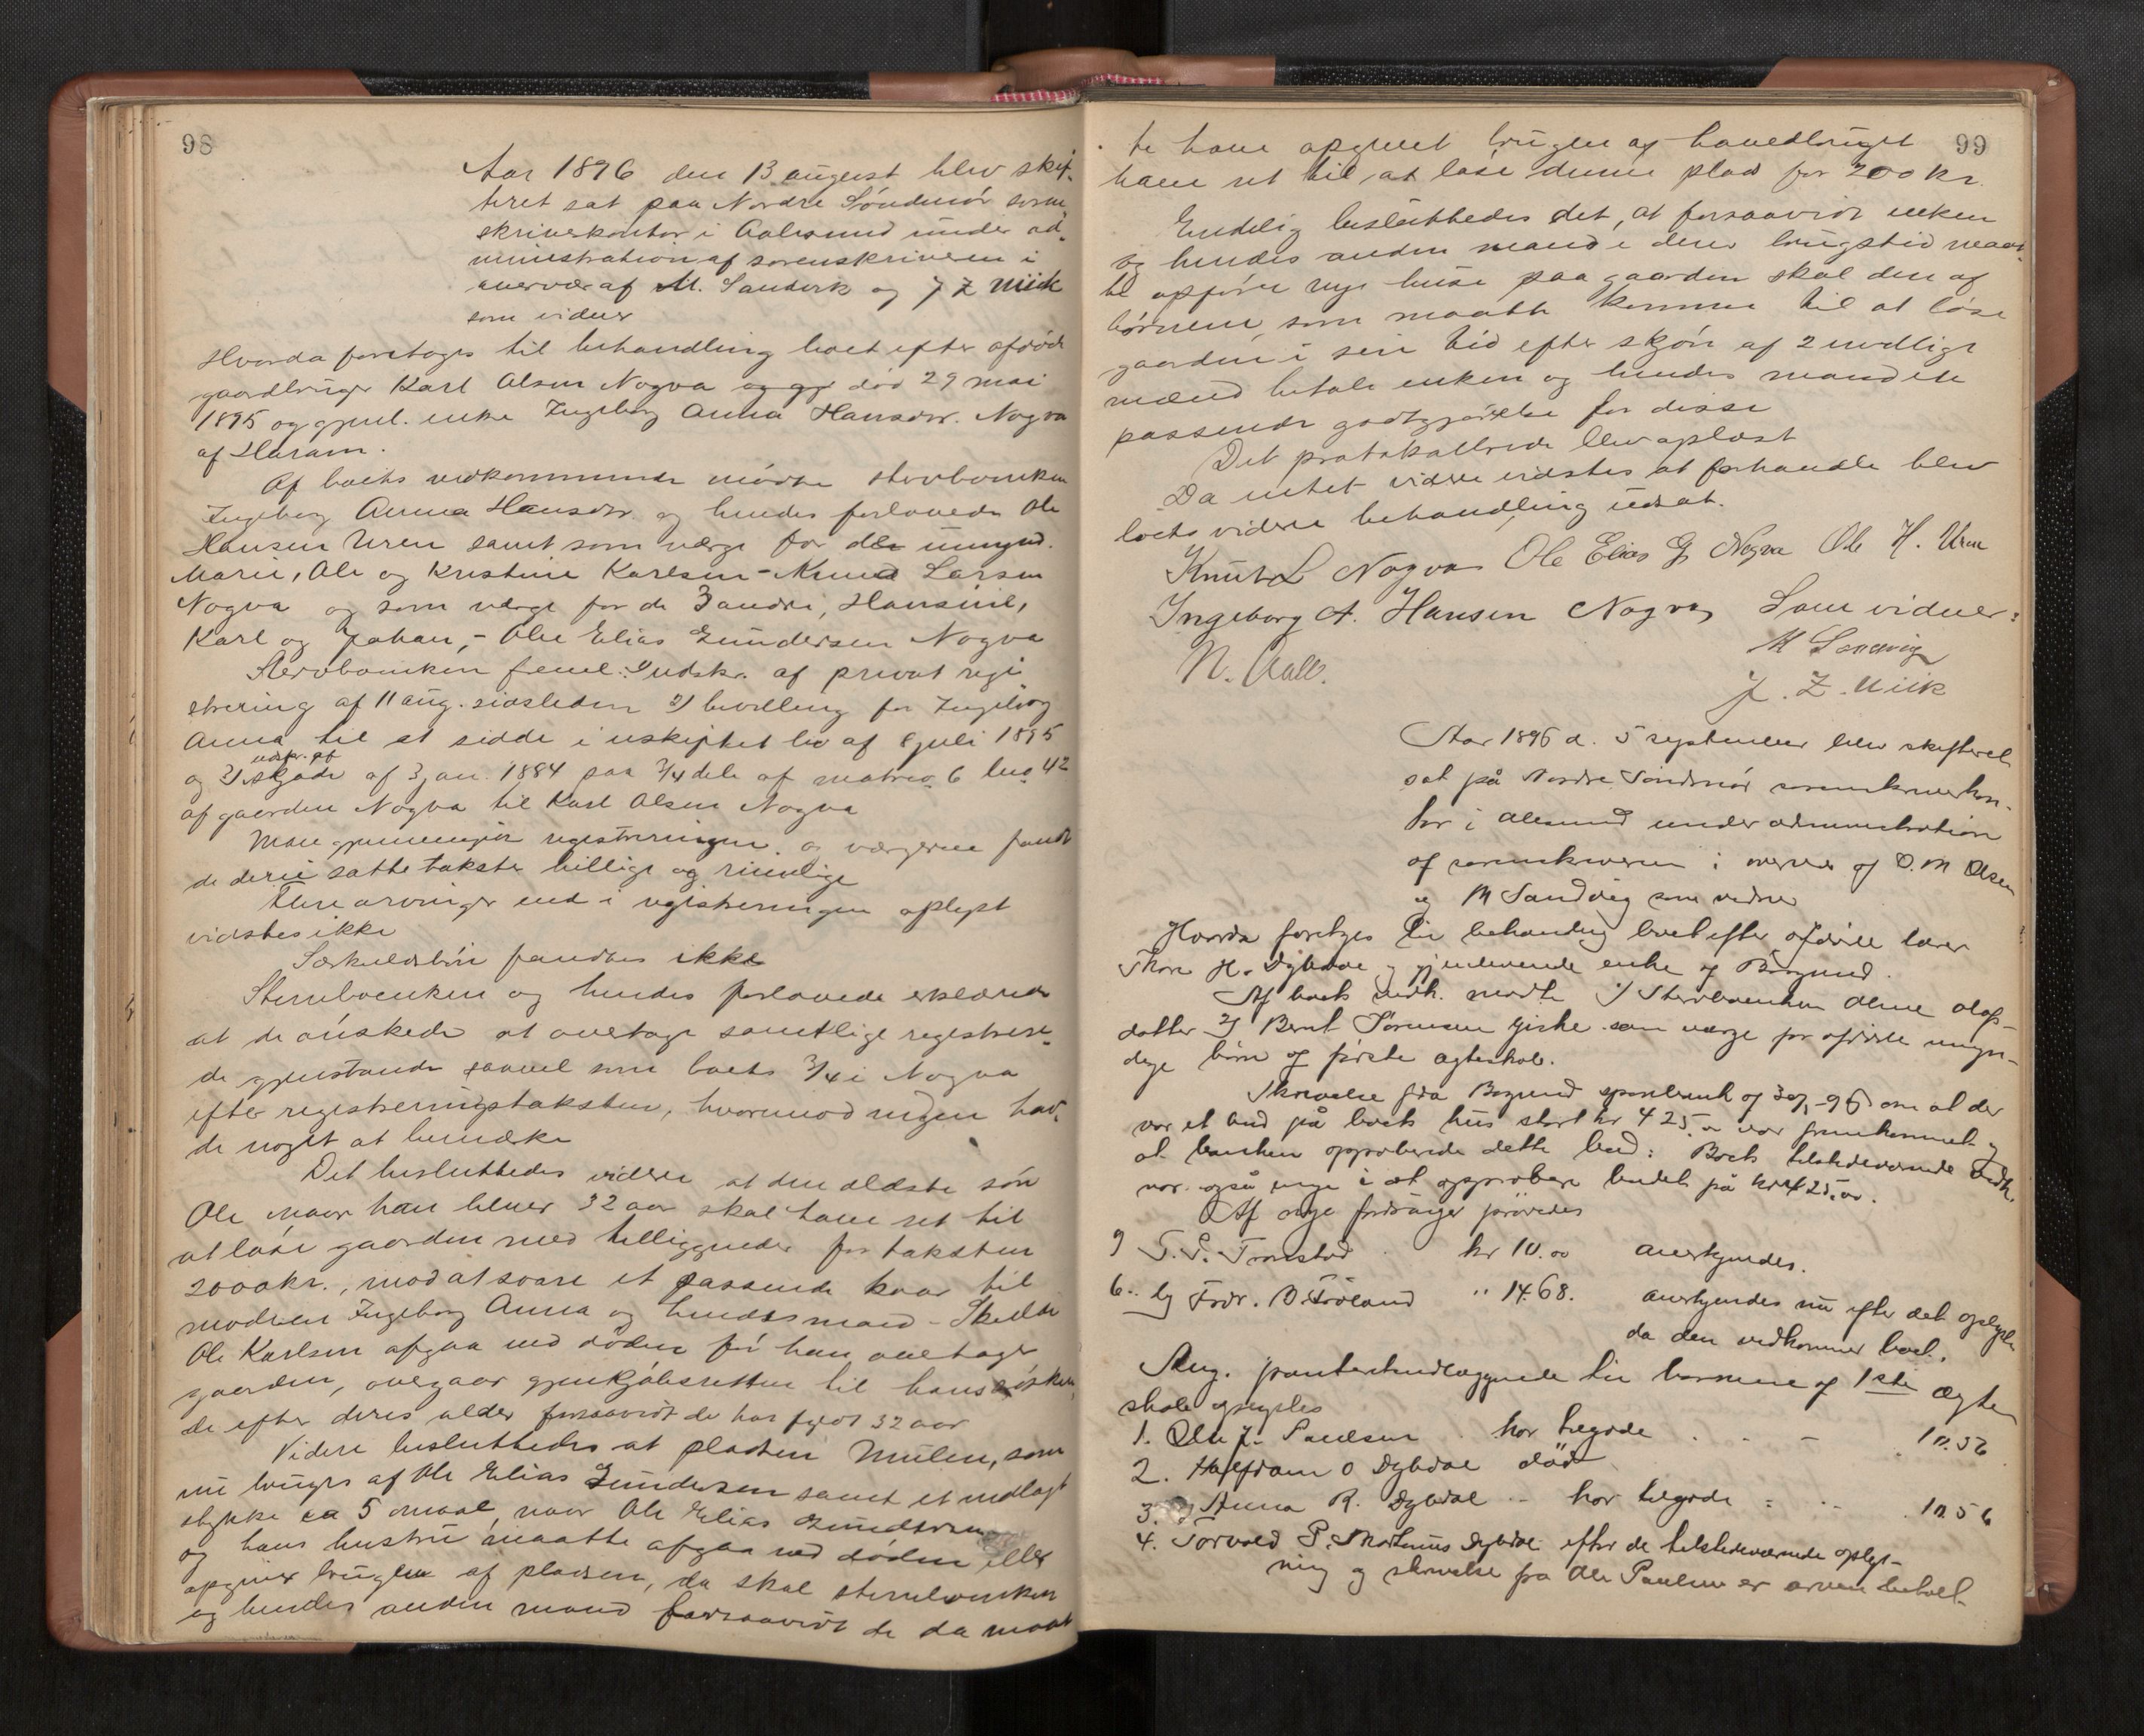 98
Aar 1896 den 13 august blev skif-
teret sat paa Nordre Søndmør soren-
skriverkontor i Aalesund under ad-
ministration af sorenskriveren i
overvær af M. Sandvik og J Z Miik
som vidner
Hvorda foretoges til behandling boet efter afdøde
gaardbruger Karl Olsen Nogva død 29 mai
1895 og gjenl. enke Ingeborg Anna Hansdtr. Nogva
af Haram.
Af boets vedkommende mødte stervboenken
Ingeborg Anna Hansdtr. og hendes forlovede Ole
Hansen Uren samt som værge for de umynd.
Marie, Ole og Kristine Karlsen - Knud Larsen
Nogva og som værge for de 3 andre, Hansine,
Karl og Johan, - Ole Elias Gundersen Nogva
Stervboenken freml: 1) udskr. af privat regi
strering af 11 aug. sidstleden 2) bevilling for Ingeborg
Anna til at sidde i uskiftet bo af 8 juli 1895
udskr. af
og 3) skjøde af 3 jan. 1884 paa 3/4 dele af matrno 6 lno 42
af gaarden Nogva til Karl Olsen Nogva
Man gjennemgik registreringen og værgerne fandt
de deri satte takster billige og rimelige
Flere arvinger end i registreringen oplyst
vidstes ikke
Særkuldsbørn fandtes ikke
Stervboenken og hendes forlovede erklærede
at de ønskede at overtage samtlige registrere-
de gjenstande saavel som boets 3/4 i Nogva
efter registreringstaksten, hvorimod ingen hav-
de noget at bemærke
Det besluttedes videre at den ældste søn
Ole naar han bliver 32 aar skal have ret til
at løse gaarden med tilliggender for taksten
2000 kr., mod at svare et passende kaar til
modren Ingeborg Anna og hendes mand - Skulde
Ole Karlsen afgaa ved døden før han overtager
gaarden, overgaar gjenkjøbsretten til hans søsken-
de efter deres alder forsaavidt de har fyldt 32 aar
Videre besluttedes at pladsen Mulen, som
nu bruges af Ole Elias Gundersen samt et udlagt
stykke ca 5 maal, naar Ole Elias Gundersen
og hans hustru maatte afgaa ved døden eller
opgiver brugen af pladsen, da skal stervboenken
og hendes anden mand forsaavidt de da maat
99
te have opgivet brugen af hovedbruget
have ret til, at løse denne plads for 200 kr.
Endelig besluttedes det, at forsaavidt enken
og hendes anden mand i deres brugstid maat-
te opføre nye huse paa gaarden skal den af
børnene, som maatte komme til at løse
gaarden i sin tid efter skjøn af 2 uvillige
mænd betale enken og hendes mand en
passende godtgjørelse for disse
Det protokollerede blev oplæst
Da intet videre vidstes at forhandle blev
boets videre behandling udsat.
Knut L Nogva Ole Elias G Nogva Ole H. Uren
Ingeborg A. Hansen Nogva Som vidner:
N. Aall. M Sandvig
J. Z. Miik
Aar 1896 d. 5 september blev skifteret
sat på Nordre Søndmør sorenskriverkon-
tor i Alesund under administration
af sorenskriveren i overvær af O. M Olsen
og M Sandvig som vidner
Hvorda foretoges til behandling boet efter afdøde lærer
H. Dybdal og gjenlevende enke af Borgund.
Af boets vedk. mødte 1) Stervboenken Oline Olaf-
datter 2) Bernt Sørensen Giske som værge for afdøde umyn-
dige børn af første ægteskab.
Skrivelse fra Borgund sparebank af 30/7-96 om at der
var et bud på boets hus stort kr 425.00 var fremkommet og
at banken approberede dette bud: Boets tilstedeværende vedk.
var også enige i at approbere budet på kr 425.00.
Af nye fordringer prøvedes
P. Tronstad kr 10.00 anerkjendes.
6. Fredr. O. Frøland " 14.68. anerkjendes nu efter det oplyste
da den vedkommer boet.
Ang. til børnene af 1ste ægte
skab oplystes
1. Ole J. Paulsen har tilgode . . - 10.56
2. Halfdan O Dybdal død
3. Anna R. Dybdal - har tilgode = - 10.56
4. Torvald P. Martinus Dybdal efter de tilstedeværende oplys-
ning og skrivelse fra Ole Paulsen er arven betalt.